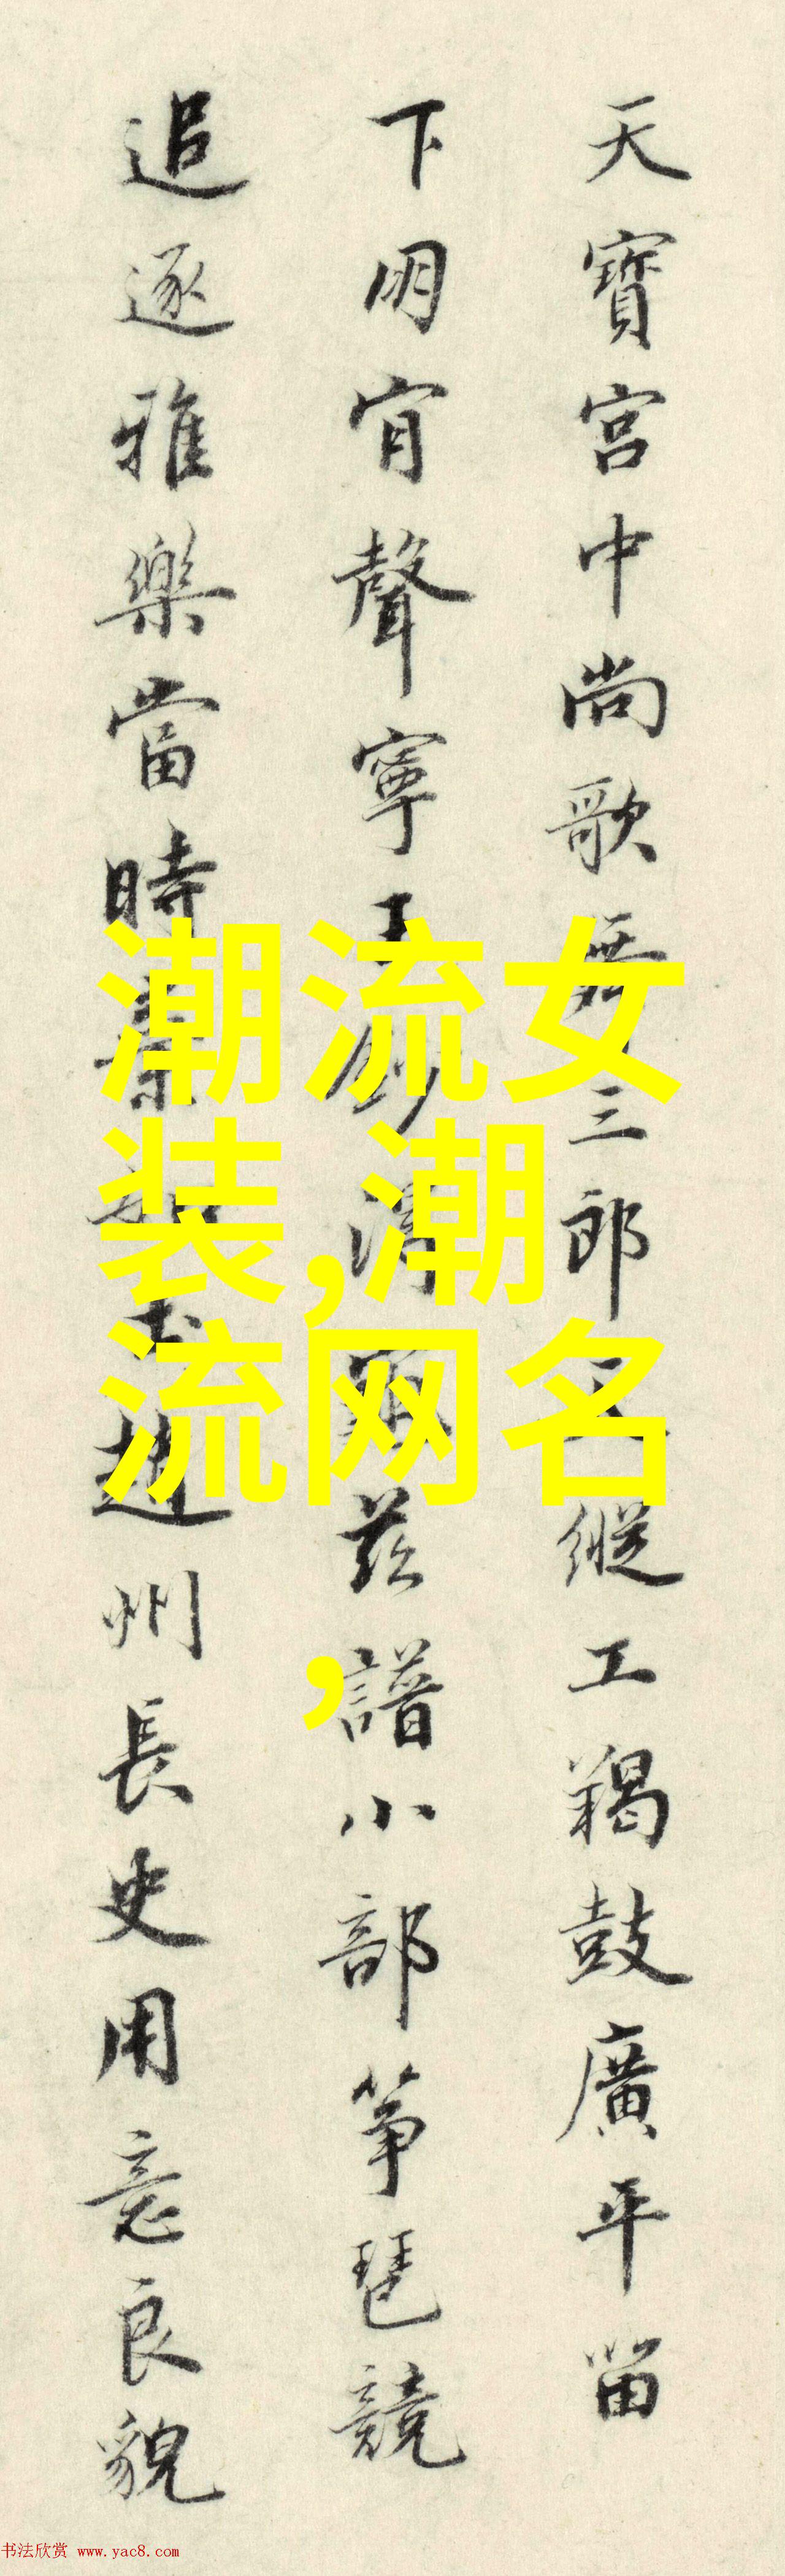 天寶宮中尚歌舞三郎縱工羯鼓廣平留
下朋肎聲寧王茲譜小部箏琶競
追逐雅樂當時趙州長史用意良貌
潮流女
装,潮
流网名
,
书法欣赏 www.yac8.com